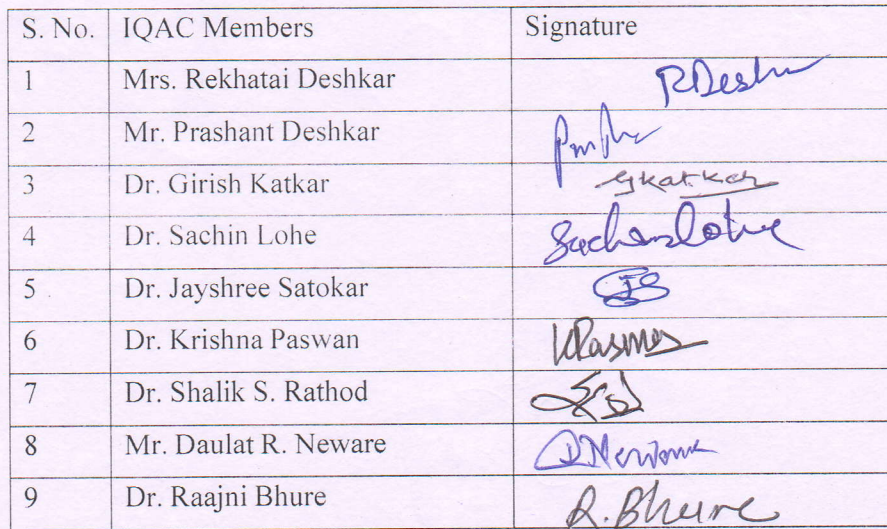 S. No. IQAC Members Signature
1 Mrs. Rekhatai Deshkar
2 Mr. Prashant Deshkar
3 Dr. Girish Katkar Gkatkar
4 Dr. Sachin Lohe Sachinlohe
5 Dr. Jayshree Satokar
6 Dr. Krishna Paswan
7 Dr. Shalik S. Rathod
8 Mr. Daulat R. Neware
9 Dr. Raajni Bhure R. Bhure